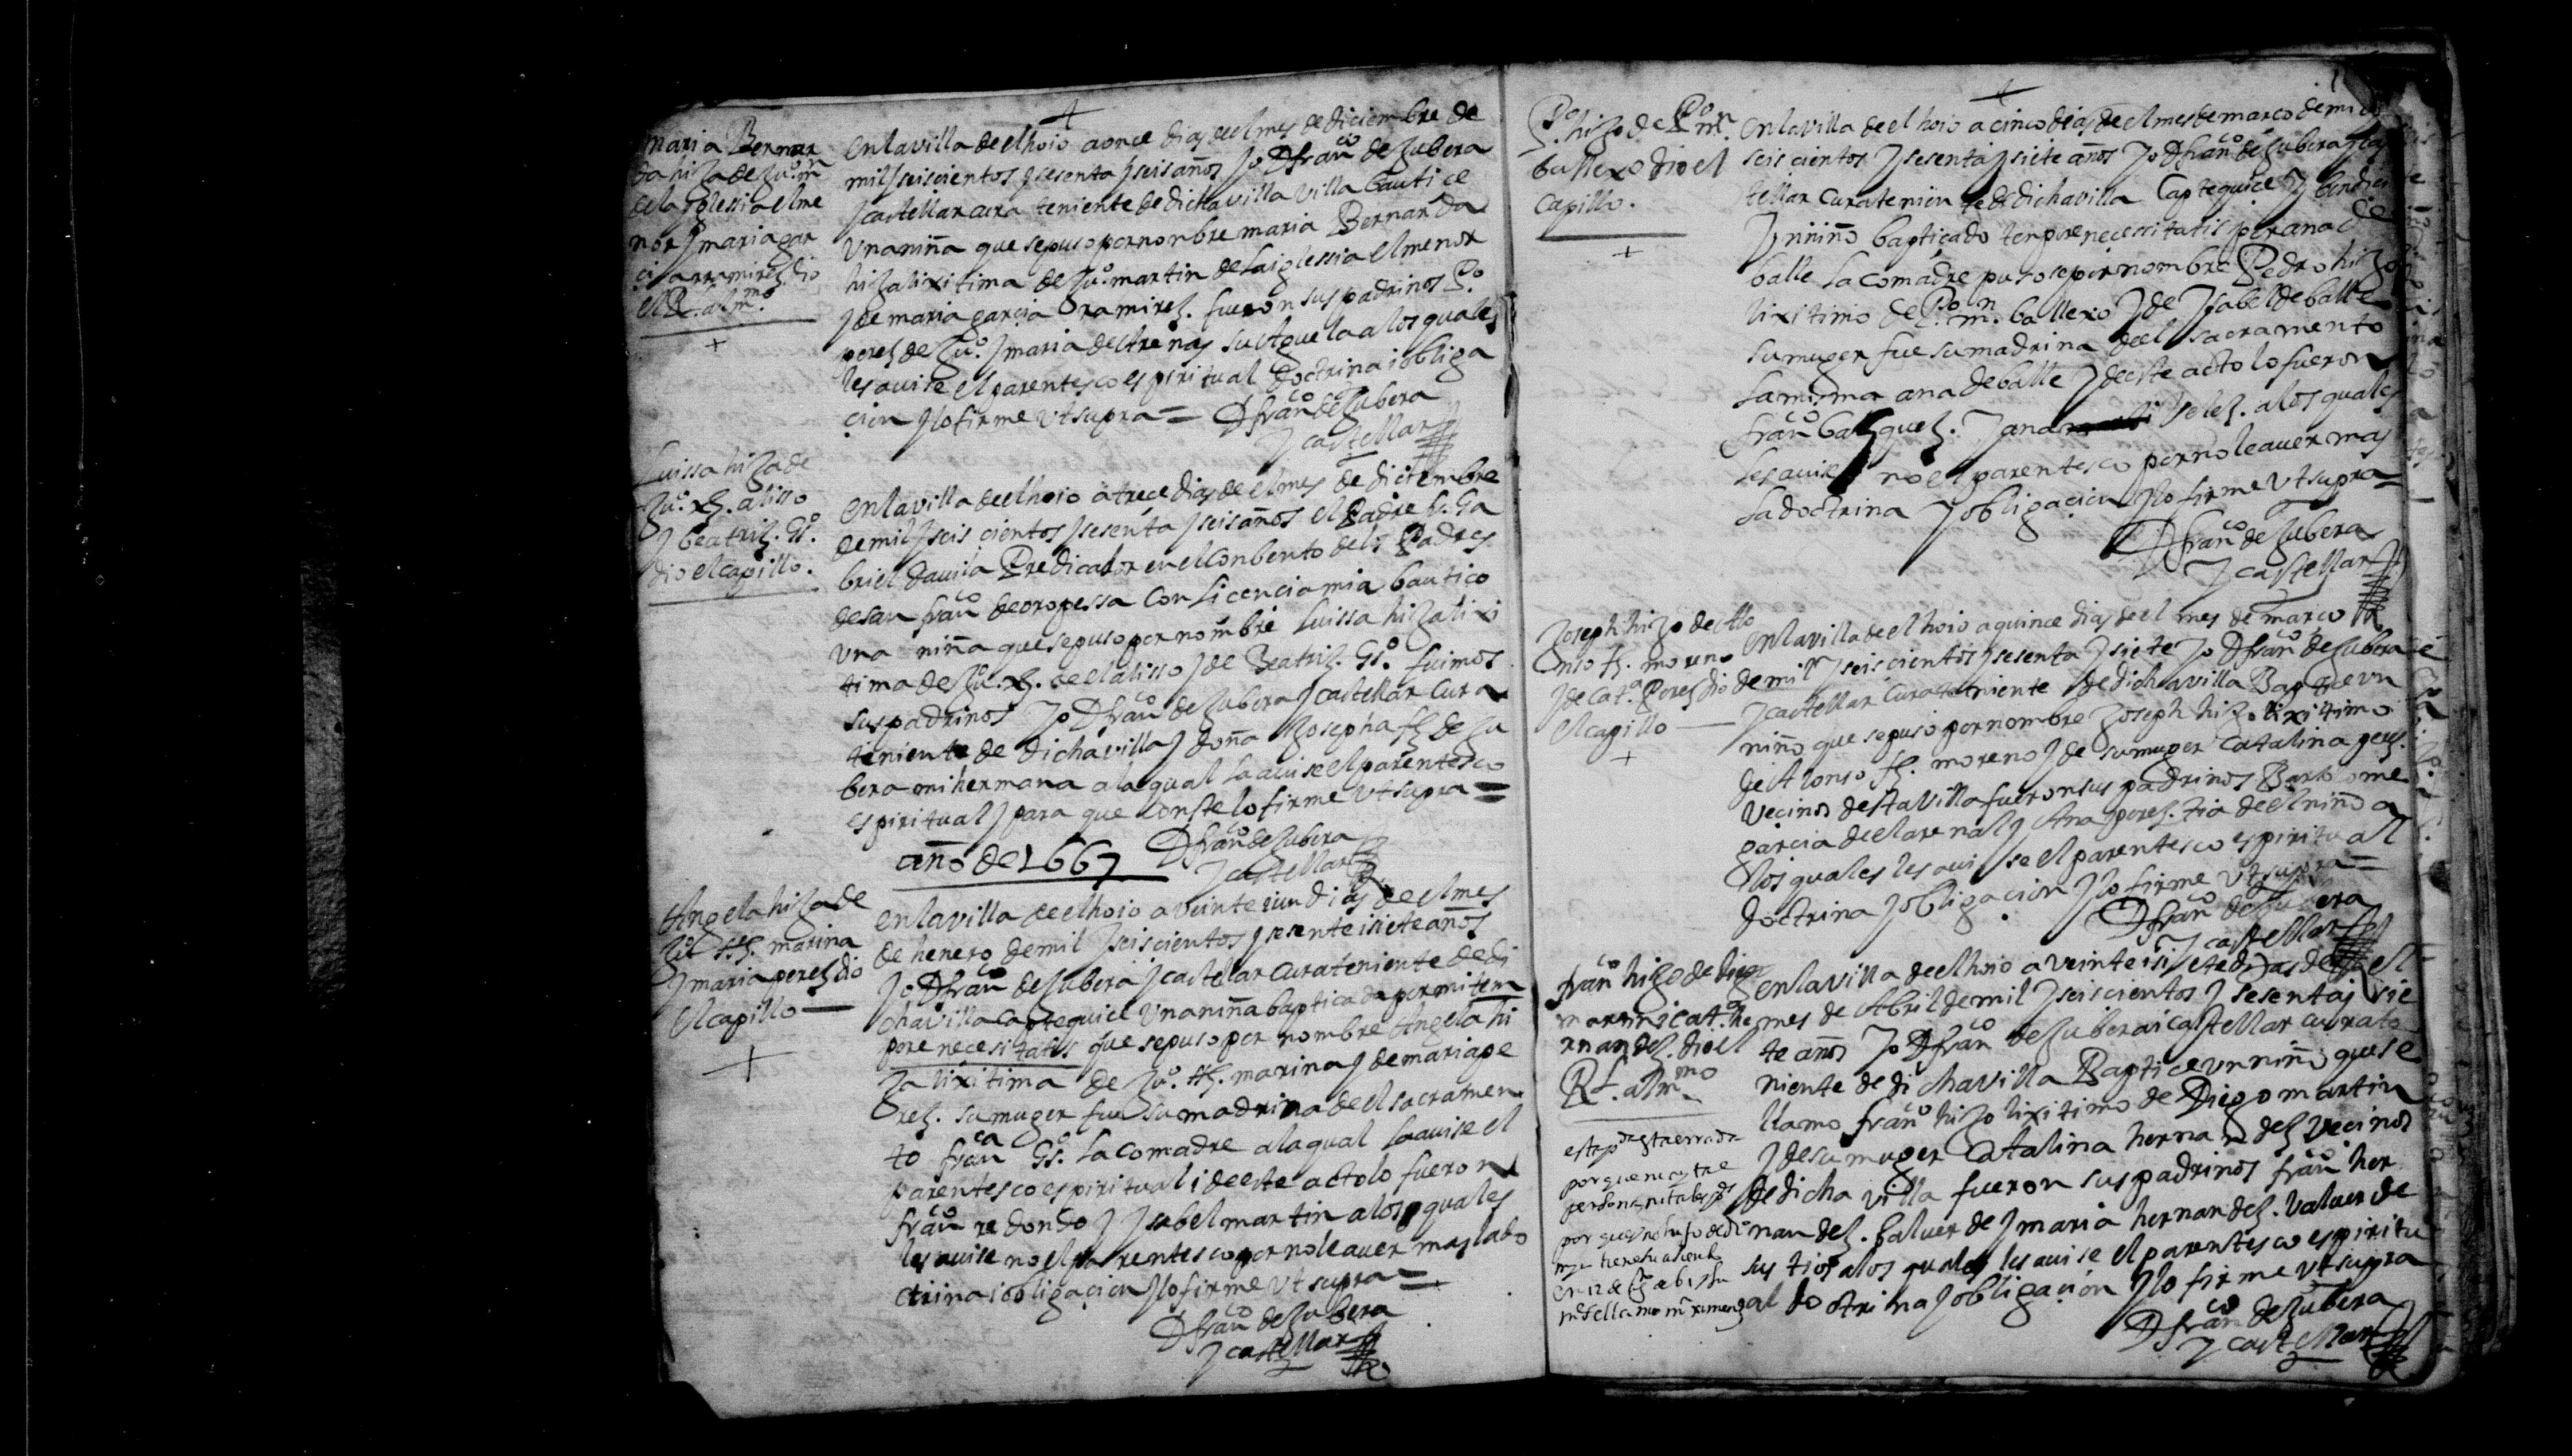 maria Bernar
da hiJa de Juº. mn
de la yglessia el me
nor J maria gar
cia rramirez. dio
el R. a. l m.mo
+
en la villa de el hoio a once dias de el mes de diciembre de
mil J seiscientos J sesenta J seis años Jo D franco de Zubera
J castellar cura teniente de dicha villa villa bautice
Vna niña que se puso por nonbre maria Bernarda
hiJa lixitima de Juº. martin de la iglessia el menor
J de maria garcia rramirez. fueron sus padrinos Pº.
perez de Juº. J maria de Arenas su Aguela a los quales
les auise el parentesco espiritual doctrina i obliga
cion J lo firme Vt supra =
D franco de Zubera
J castellar
Luissa hiJa de
Juº. xz. alisso
J beatriz. Gsº.
dio el capillo.
en la villa de el hoio a trece dias de el mes de diciembre
de mil J seis cientos J sesenta J seis años el Padre fr. Ga
briel dauila Predicador en el Conbento de ls Padres
de san franco de oropessa Con Licencia mia bautico
Vna niña que se puso por nombre Luissa hiJa lixi
tima de Juº. xz. de el alisso J de Beatriz. Gsº. fuimos
sus padrinos Jo D franco de Zubera J castellar Cura
teniente de dicha villa J doña Josepha fz de Zu
bera mi hermana a la qual La auise el parentesco
espiritual J para que conste lo firme Vt supra =
D franco de Zubera
J castellar
año de 1667
Angela hiJa de
Juº. ssz. marina
J maria perez dio
el capillo —
+
en la villa de el hoio a veinte iun dias de el mes
de henero de mil J seiscientos J sesente i siete años
Jo D franco de Zubera J castellar Cura teniente de di
cha villa Captequice Vna niña bapticada per mi tem
pore necesitatis que se puso por nombre Angela hi
Ja lixitima de Juº. ssz. marina J de maria pe
rez. su muger fue su madrina de el sacramen
to franca Gsº. La comadre a la qual La auise el
parentesco espiritual i de este acto lo fueron
franco redondo J Jsabel martin a los quales
les auise no el parentesco por no le auer mas la do
ctrina i obligacion J lo firme Vt supra =
D franco de Zubera
J castellar
Pº hiJo de Pº mn.
ballexo dio el
Capillo.
+
en la villa de el hoio a cinco dias de el mes de março de mil
seis cientos J sesenta J siete años Jo D franco de Zubera J cas
tellar Cura teniente de dicha villa Captequice J bendici
J niño bapticado tenpore necessitatis por ana de
balle La comadre pusose por nombre Pedro hiJo
lixitimo de Pº. mn. ballexo J de Jsabel de balle
su muger fue su madrina de el sacramento
La misma ana de balle J de este acto lo fueron
franco bazquez. J ana Velez. a los quales
les auise no el parentesco por no le auer mas
La doctrina J obligacion J lo firme Vt supra =
D franco de Zubera
J castellar
Joseph hiJo de Alo
nso fz. moreno
J de Cat.a Perez dio
el capillo —
+
en la villa de el hoio a quince dias de el mes de março
de mil J seiscientos J sesenta J siete Jo D franco de Zubera
J castellar Cura teniente de dicha villa Baptice vn
niño que se puso por nombre Joseph hiJo lixitimo
de Alonso fz. moreno J de su muger Catalina perez.
Vecinos desta Villa fueron sus padrinos Bartolome
garcia de el arenal J Ana perez. tia de el niño a
los quales les auise el parentesco espiritual
doctrina J obligacion J lo firme Vt supra =
D franco de Zubera
J castellar
franco hiJo de diego
martin i cat.a he
rnandez. dio el
R L. a l m.mo
en la villa de el hoio a veinte i siete dias de el
mes de Abril de mil J seiscientos J sesenta J sie
te años Jo D franco de Zubera i castellar cura te
niente de dicha Villa Baptice vn niño que se
llamo franco hiJo lixitimo de Diego martin
J de su muger Catalina hernandez Vecinos
de dicha villa fueron sus padrinos franco her
nandez. balverde J maria hernandez. Valuerde
sus tios a los quales les auise el parentesco espiritu
al doctrina J obligacion J lo firme Vt supra
D franco de Zubera
J castellar
esta pda esta errada
porque
porque no huJo de dº